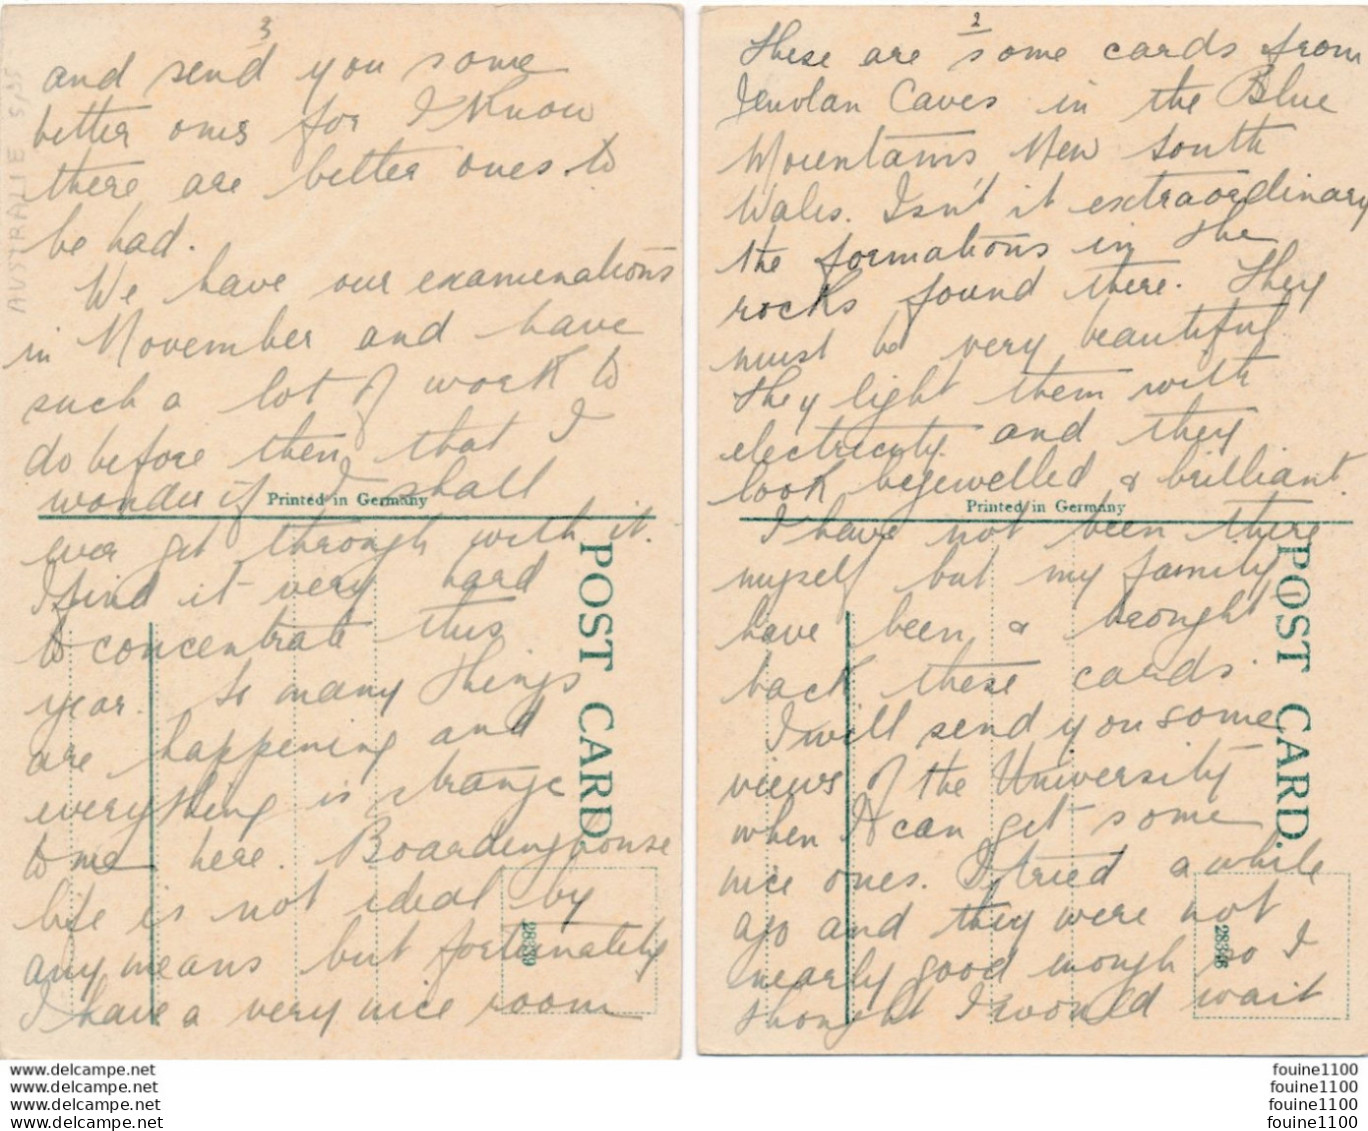 3
and send you some
better ones for I know
there are better ones to
be had.
We have our examinations
in November and have
such a lot of work to
do before then that I
wonder if I shall
Printed in Germany
ever get through with it.
I find it very hard
to concentrate this
year. So many things
are happening and
everything is strange
to me here. Boardinghouse
life is not ideal by
any means but fortunately
I have a very nice room
POST CARD.
28339
AUSTRALIE
2
These are some cards from
Jenolan Caves in the Blue
Mountains New South
Wales. Isn't it extraordinary
the formations in the
rocks found there. They
must be very beautiful
They light them with
electricity and they
look bejewelled & brilliant.
Printed in Germany
I have not been there
myself but my family
have been & brought
back these cards.
I will send you some
views of the University
when I can get some
nice ones. I tried a while
ago and they were not
nearly good enough so I
thought I would wait
POST CARD.
www.delcampe.net
www.delcampe.net
www.delcampe.net
www.delcampe.net
fouine1100
fouine1100
fouine1100
fouine1100